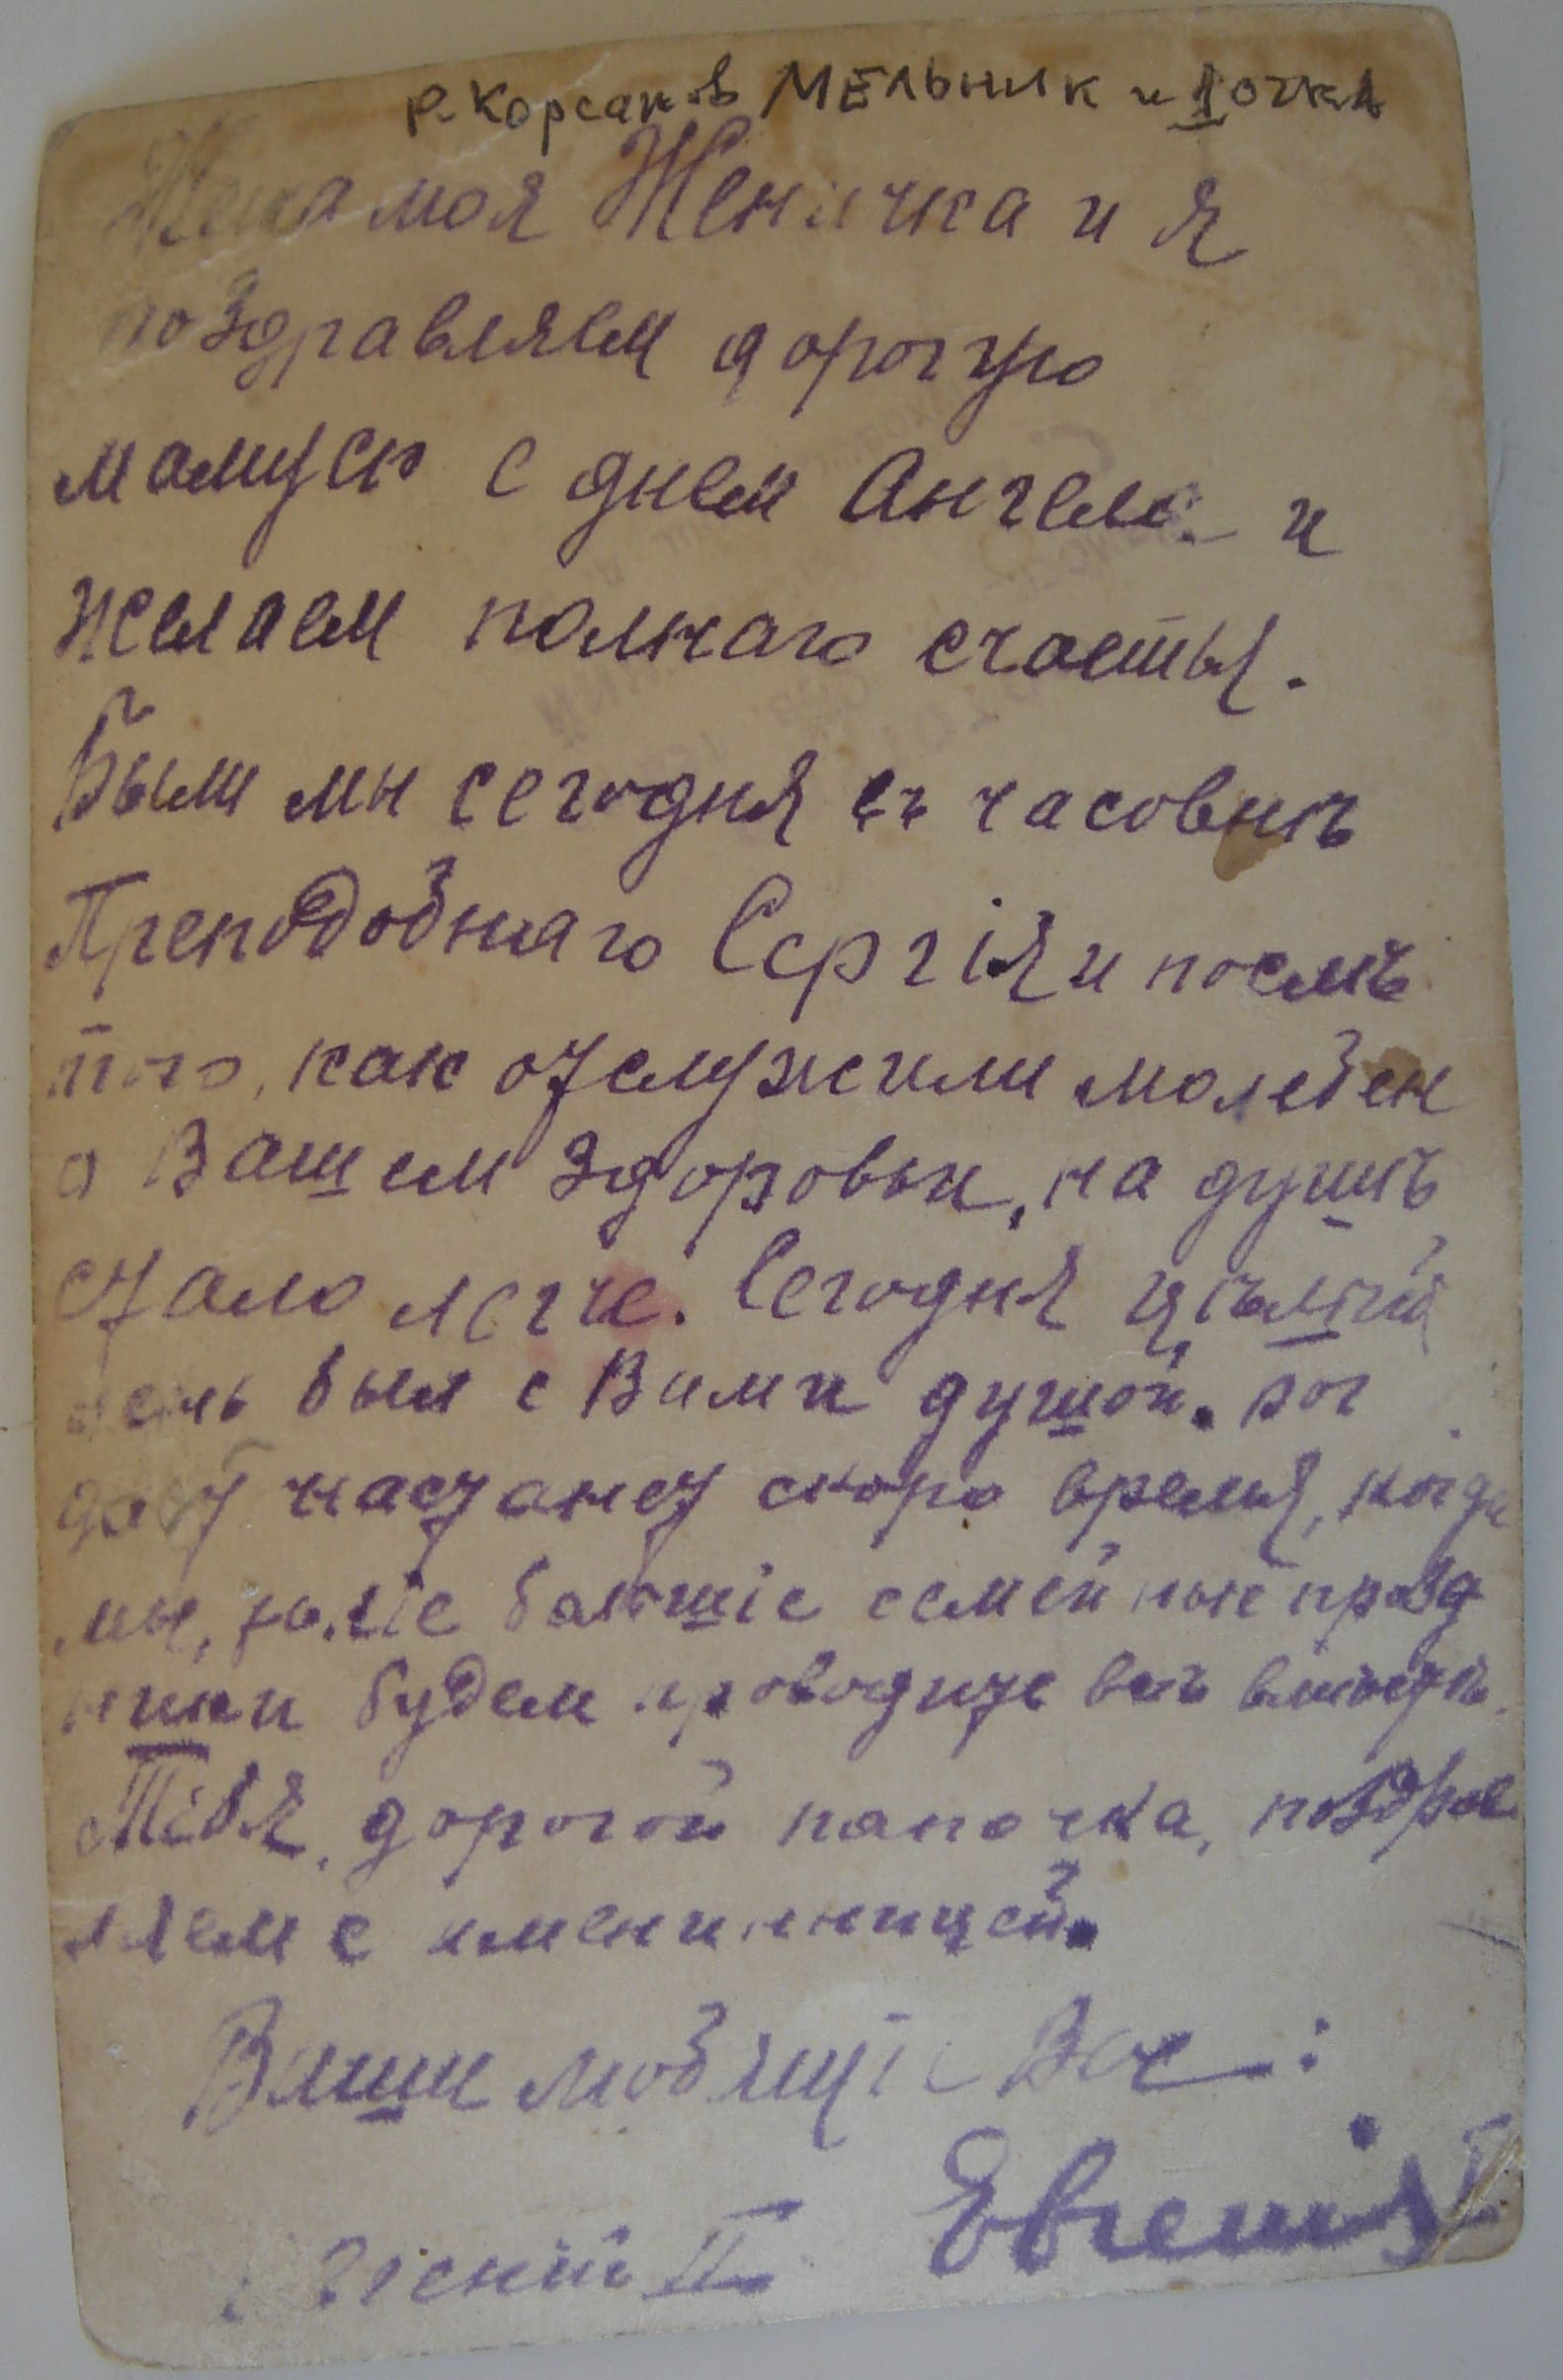 Р. Корсаков МЕЛЬНИК и ДОЧКА
Жена моя Женичка и я
поздравляем дорогую
мамусю с днем Ангела и
желаем полнаго счастья.
Были мы сегодня в часовнѣ
Преподобнаго Сергія и послѣ
того, как отслужили молебен
о Вашем здоровьи, на душѣ
стало легче. Сегодня цѣлый
день был с Вами душой. Бог
даст настанет скоро время, когда
мы, такіе большіе семейные празд
ники будем проводить всѣ вмѣстѣ.
Тебя, дорогой папочка, поздрав
ляем с именинницей.
Ваши любящіе Вас:
Евгеній П. Евгенія П.